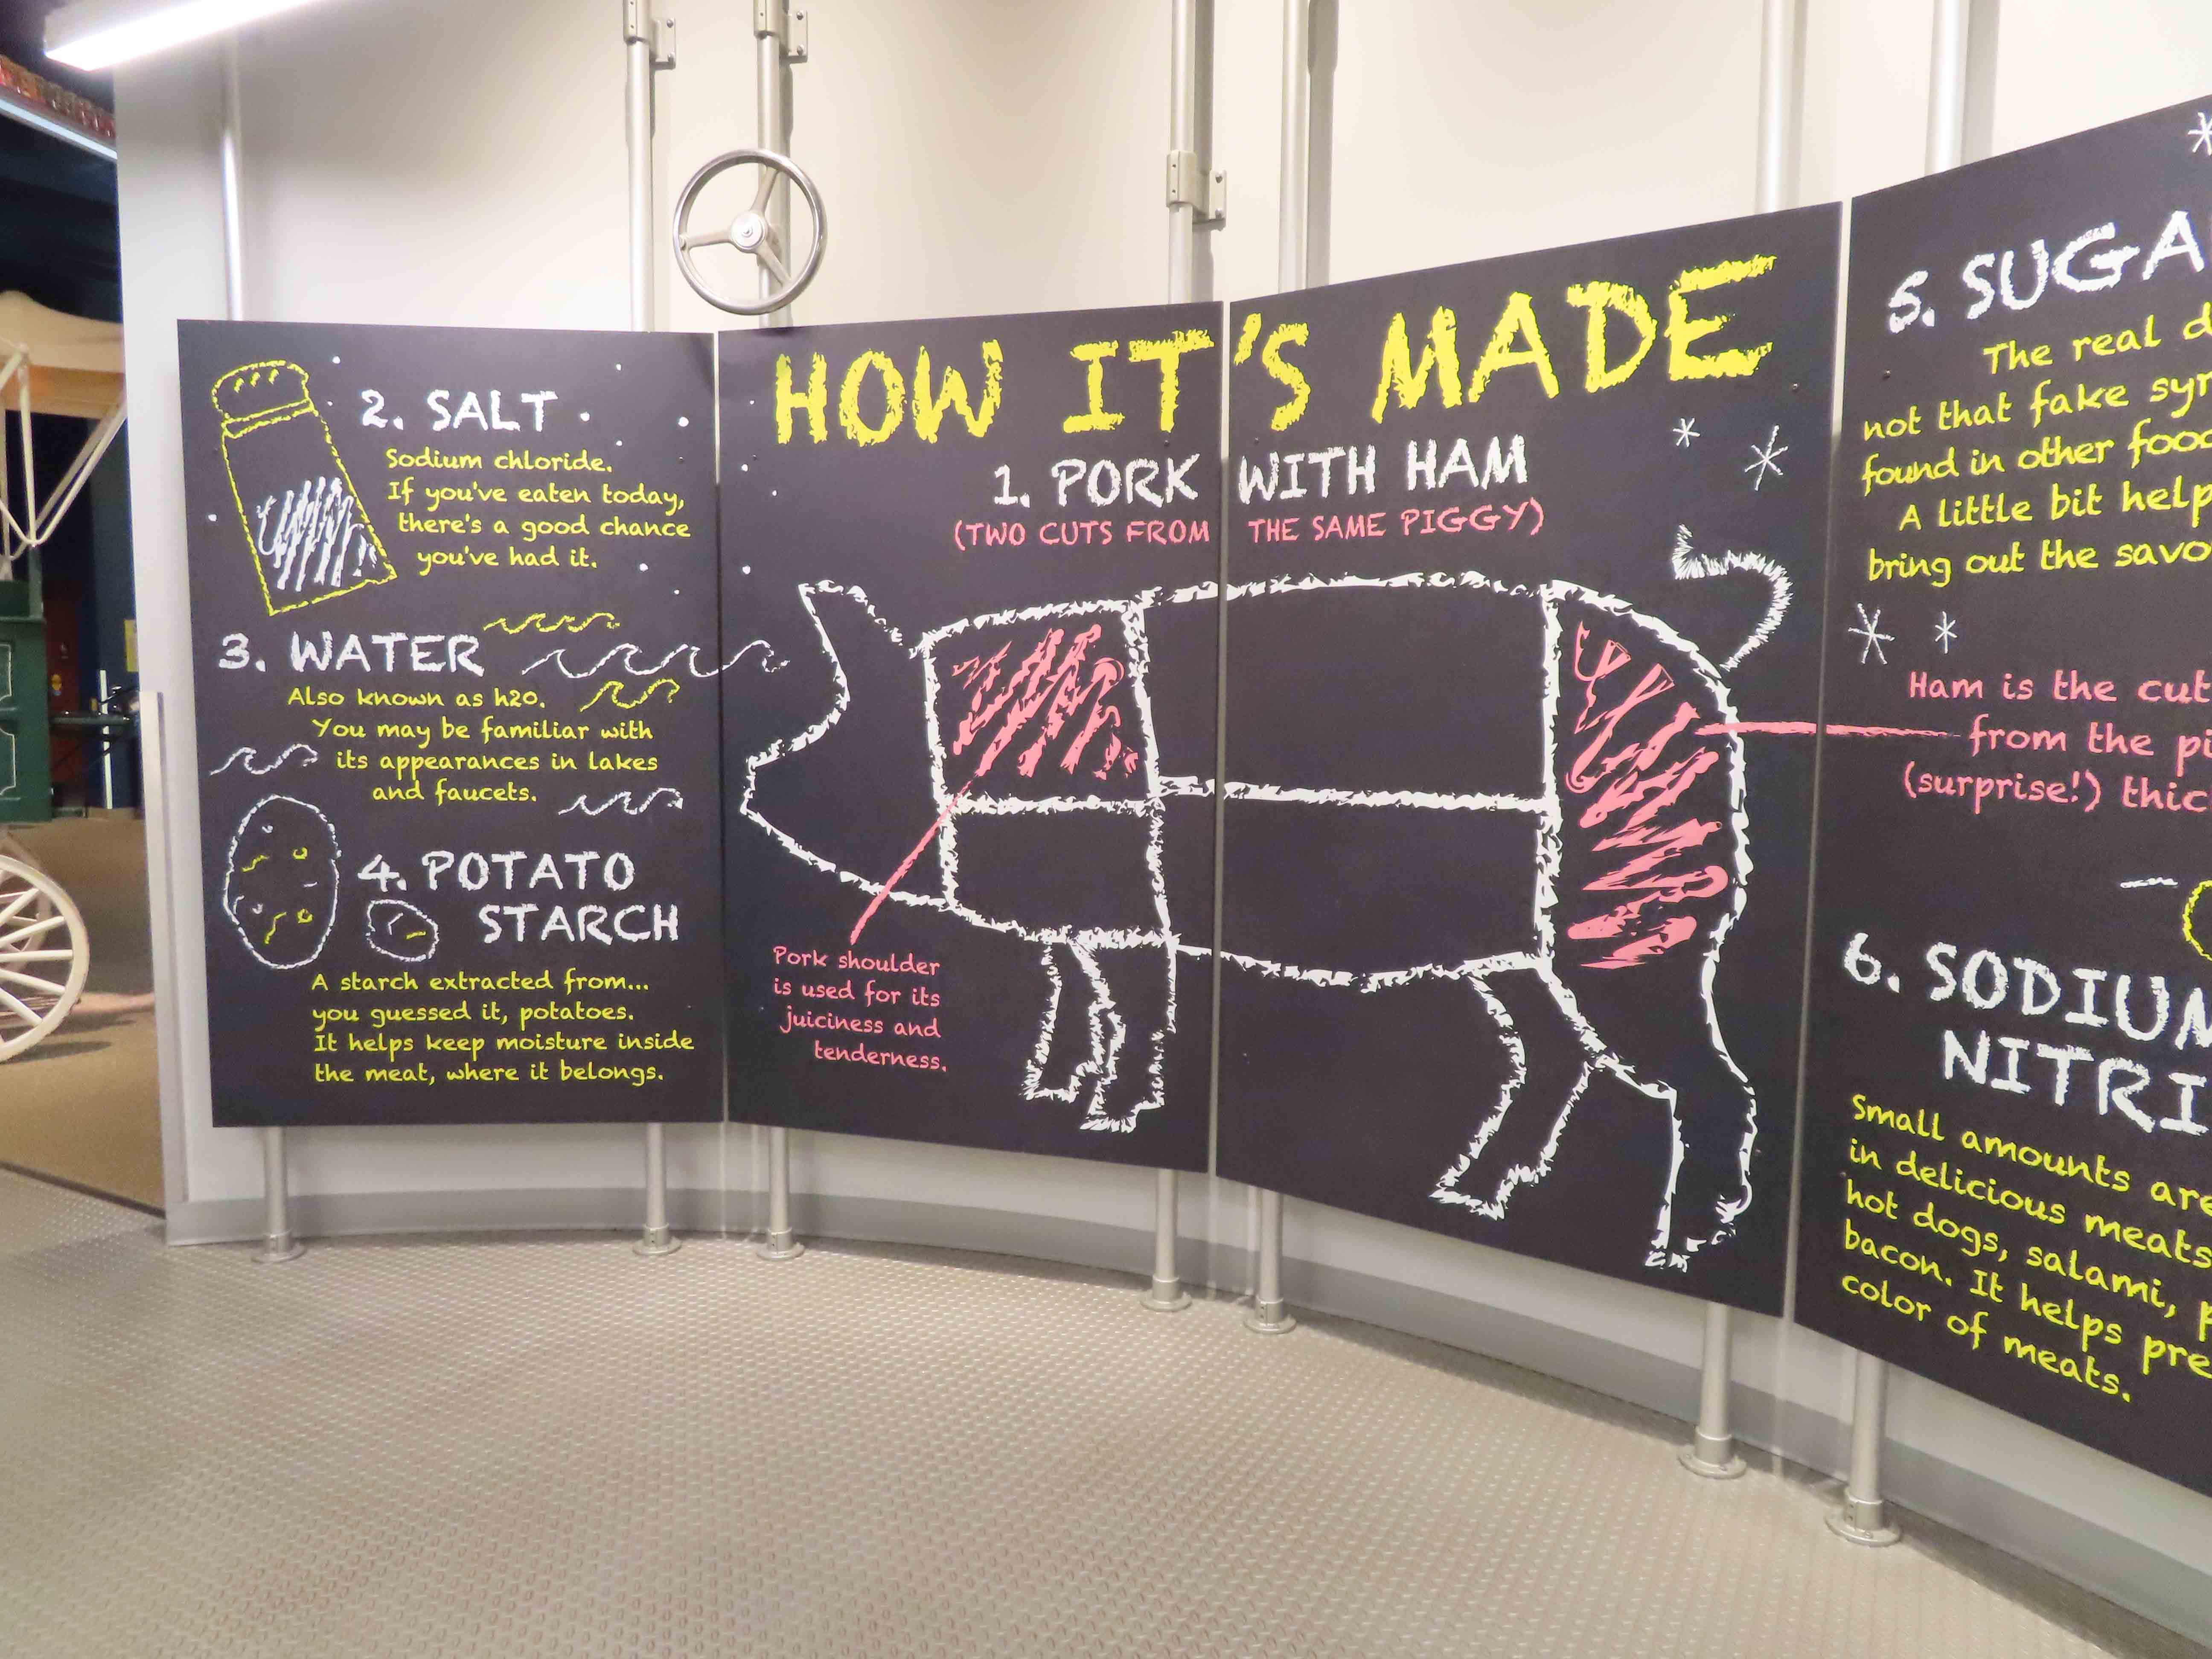 HOW IT'S MADE
1. PORK WITH HAM
(TWO CUTS FROM THE SAME PIGGY)
Pork shoulder
is used for its
juiciness and
tenderness.
2. SALT
Sodium chloride.
If you've eaten today,
there's a good chance
you've had it.
3. WATER
Also known as h2o.
You may be familiar with
its appearances in lakes
and faucets.
4. POTATO
STARCH
A starch extracted from...
you guessed it, potatoes.
It helps keep moisture inside
the meat, where it belongs.
5.
The real
not that fake
found in other
A little bit
bring out the
Ham is the cut
from the
(surprise!)
6.
Small amounts are
in delicious meats
hot dogs, salami,
bacon. It helps
color of meats.